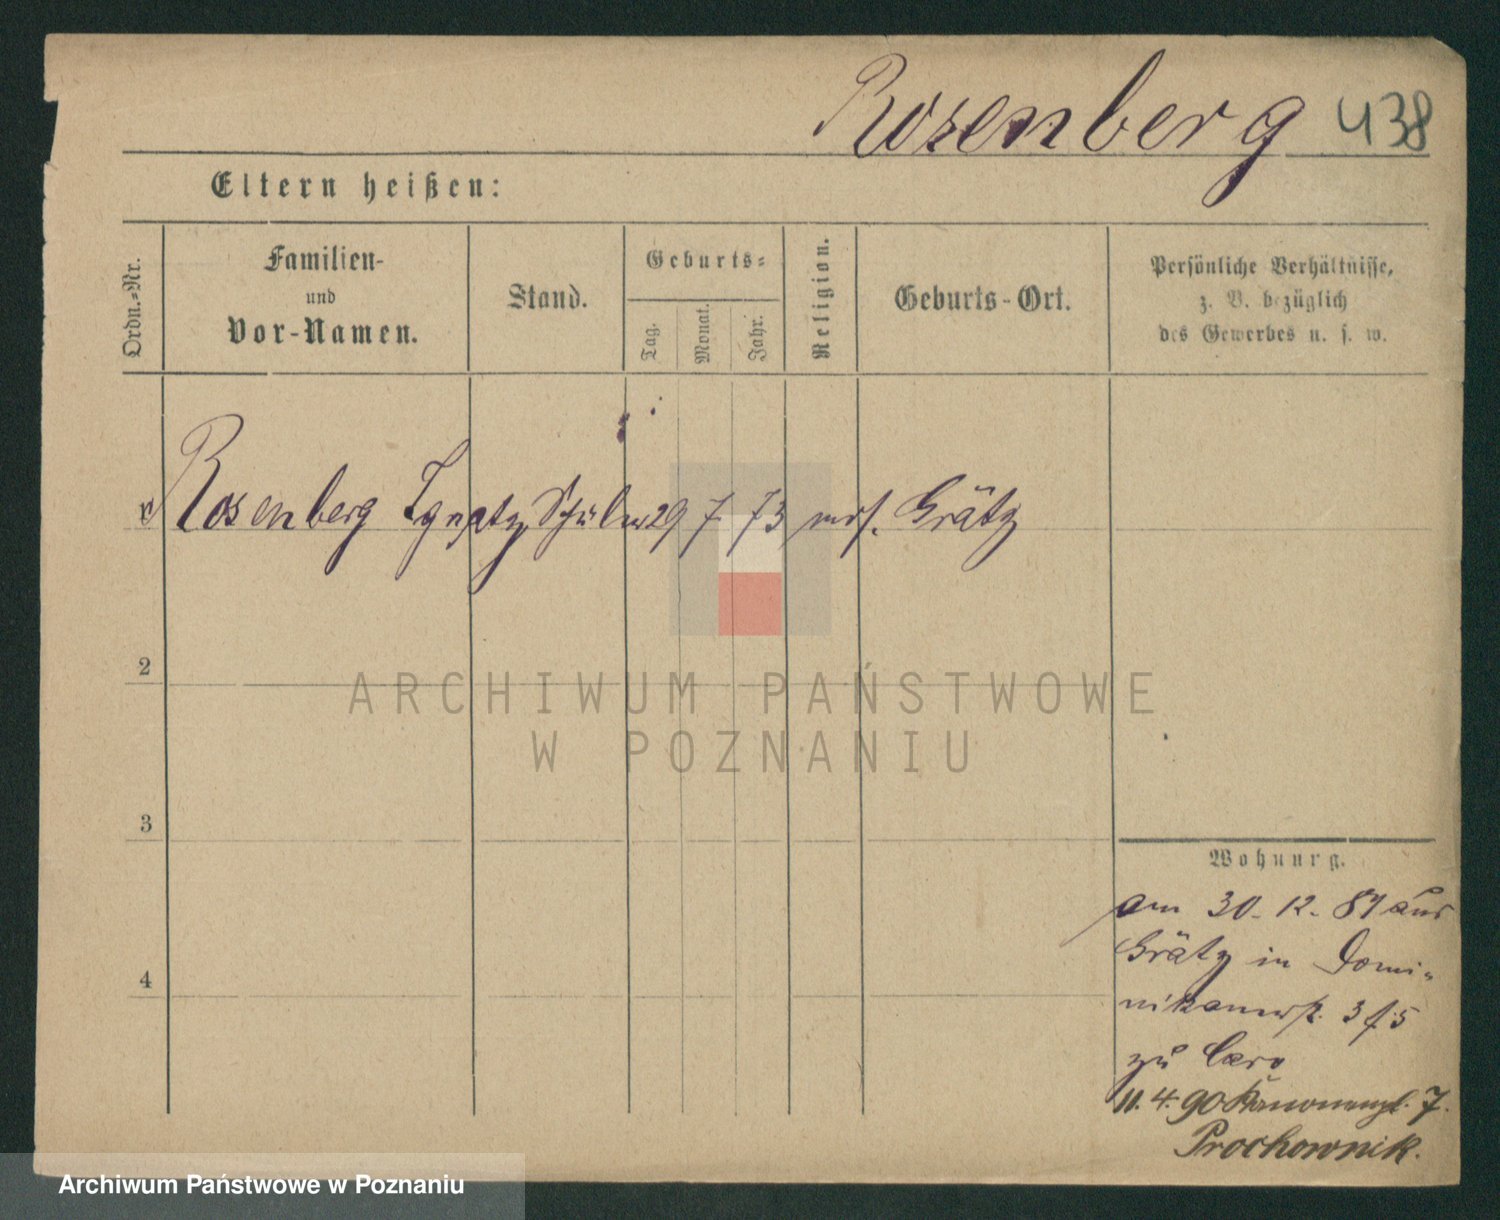 Rosenberg 438
Eltern heißen:
Ordn.-Nr.
Familien-
und
Vor-Namen.
Stand.
Geburts-
Tag.
Monat.
Jahr.
Religion.
Geburts-Ort.
Persönliche Verhältnisse,
z. B. bezüglich
des Gewerbes u. s. w.
Rosenberg Ignatz Schüler 29 7 73 mos. Grätz
2
ARCHIWUM PAŃSTWOWE
W POZNANIU
3
4
Wohnung.
am 30. 12. 87 aus
Grätz in Domi-
nikanerstr. 3
zu Caro
11. 4. 90 Kanonenpl. 7.
Prochownik.
Archiwum Państwowe w Poznaniu